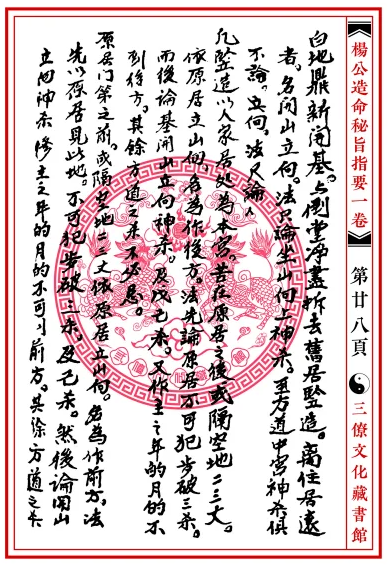 楊公造命秘旨指要一卷
第廿八頁
三僚文化藏書館
白地鼎新開基。与倒堂淨盡拆去舊居竪造。離住居遠
者。名開山立向。法只論坐山向上神杀。至方道中宮神杀俱
不論。立向。法只論
凡竪造以人家居处為本宮。若在原居之後或隔空地二三丈。
依原居立山向。名為作後方。法先論原居不可犯步破三杀。
而後論基開山立向神杀。及戊己杀。又作主之年的月的不
到後方。其餘方道之杀不必忌。
原居门第之前。或隔空地二三丈依原居立山向。名為作前方。法
先以原居見此地。不可犯步破三杀，及己杀。然後論開山
立向神杀修主之年的月的不可到前方。其餘方道之杀